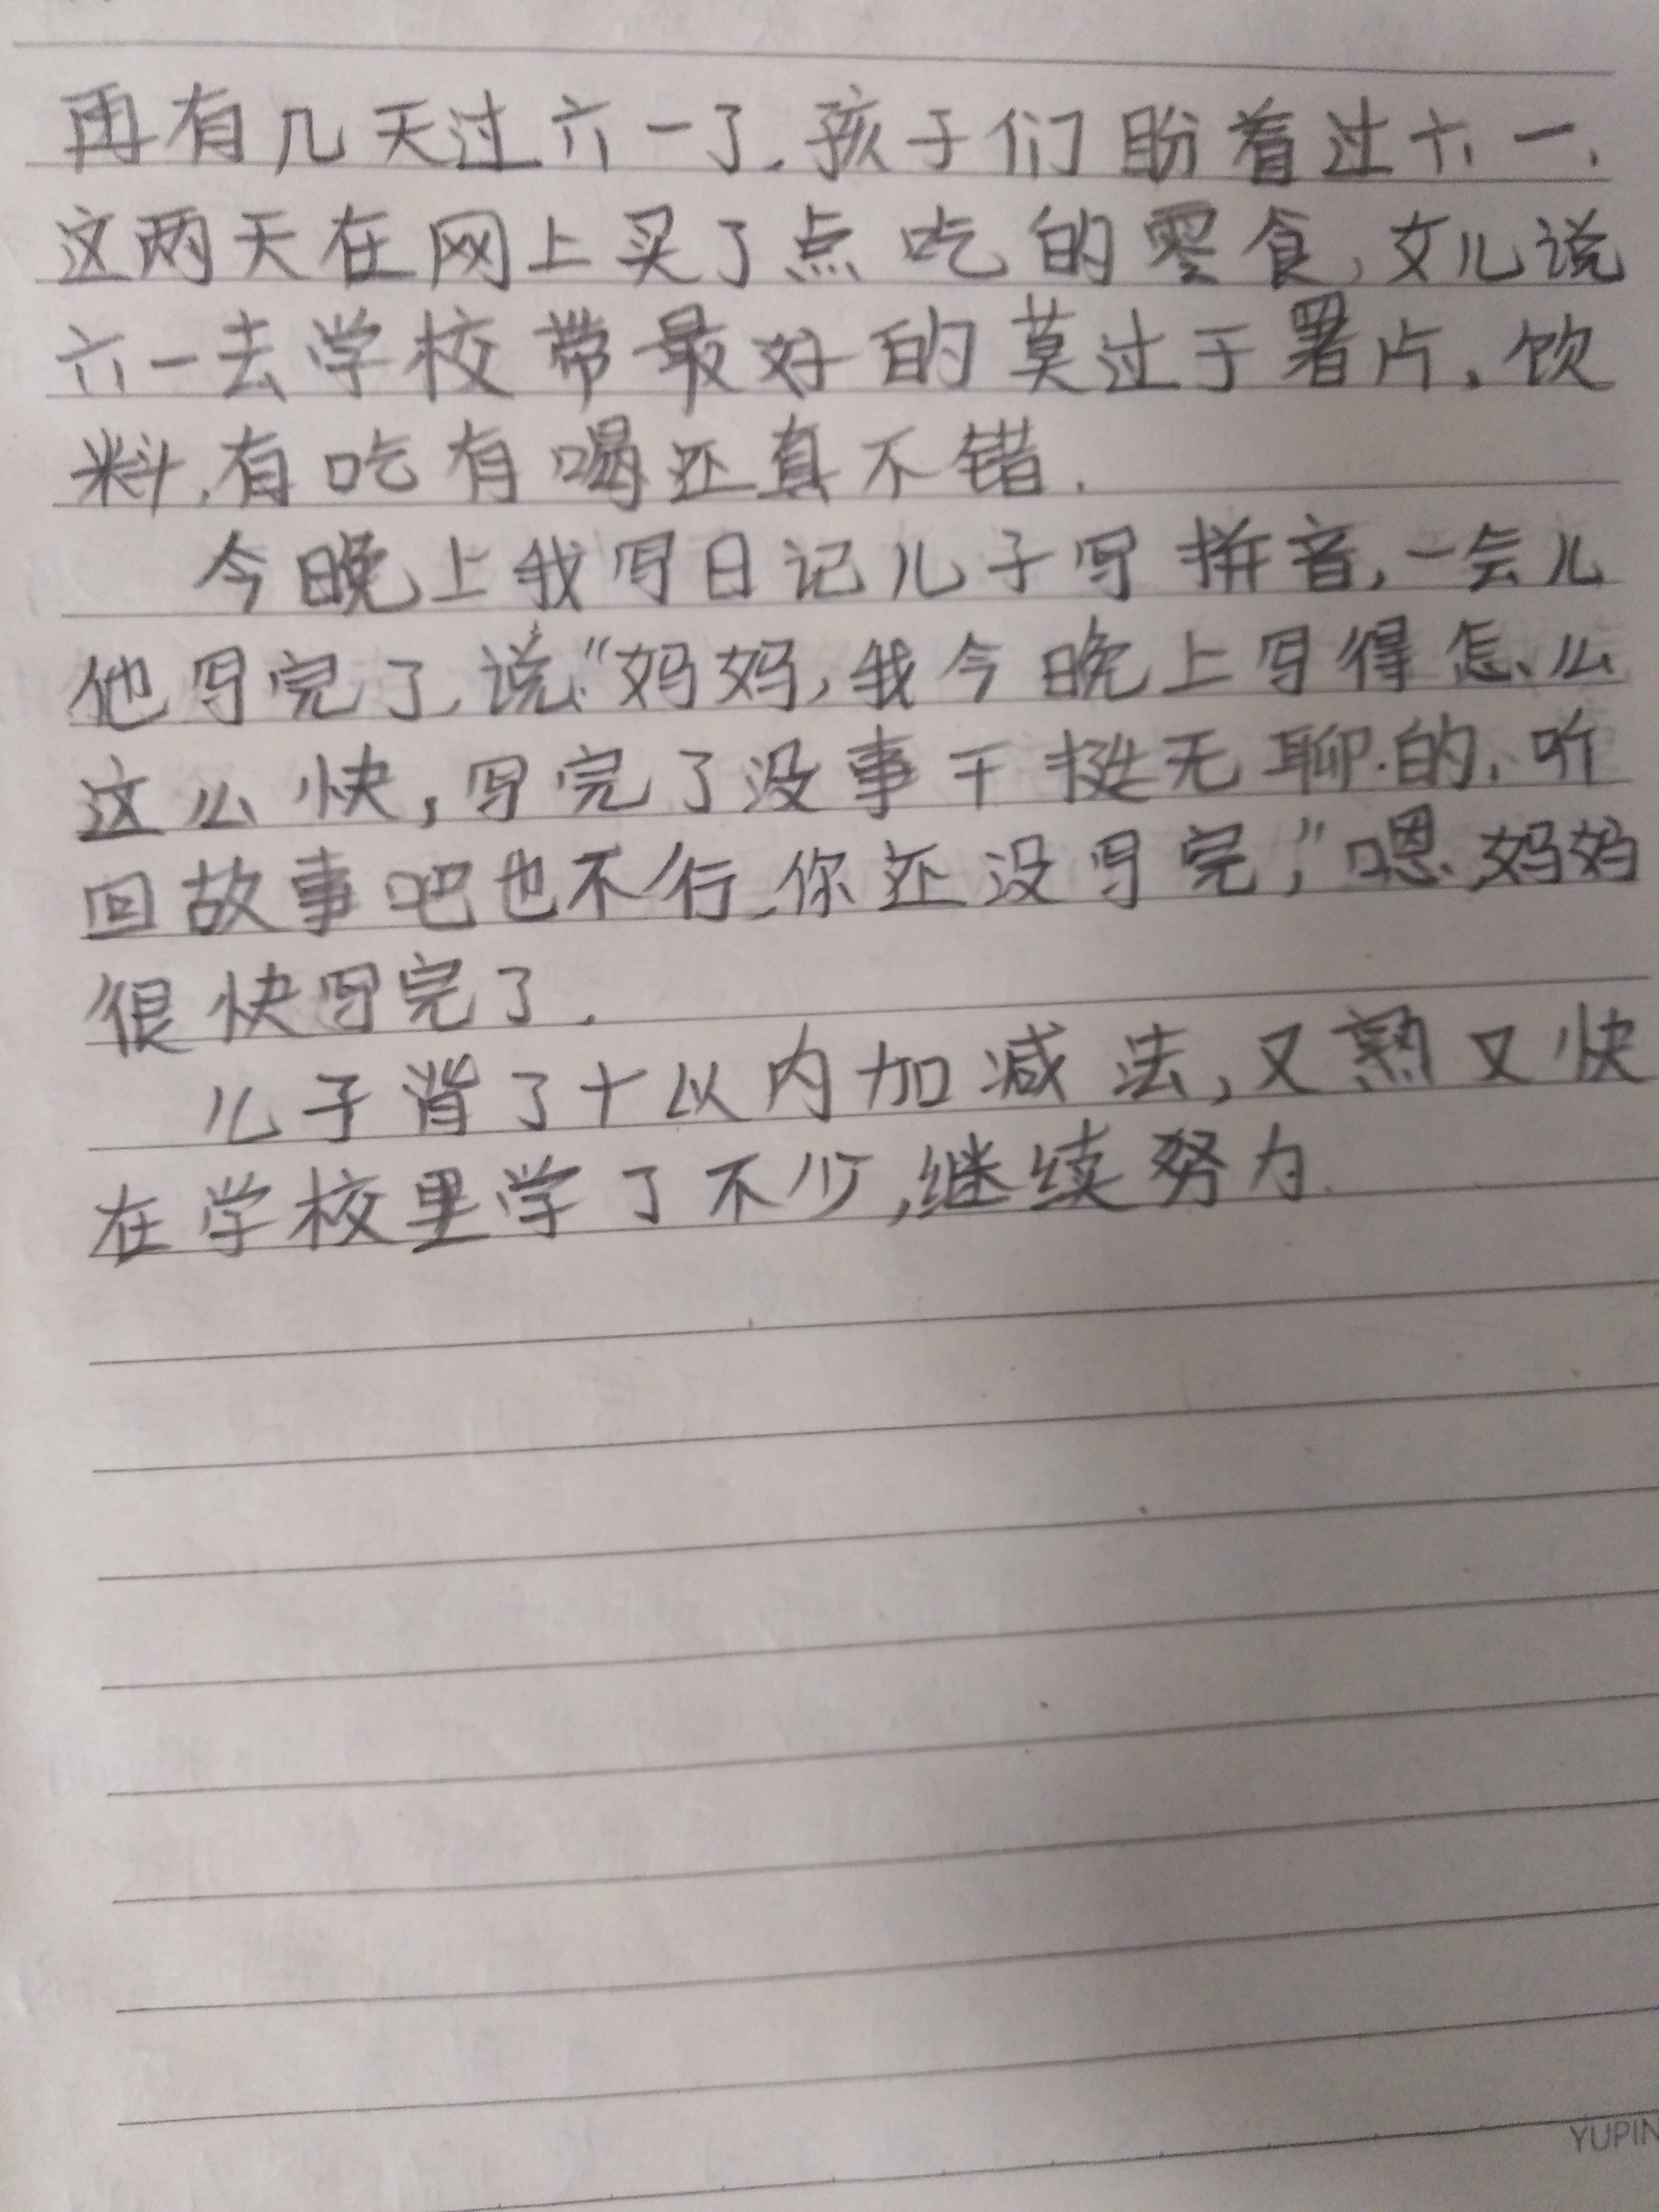 再有几天过六一了.孩子们盼着过六一.
这两天在网上买了点吃的零食,女儿说
六一去学校带最好的莫过于署片.饮
料.有吃有喝还真不错.
今晚上我写日记儿子写拼音,一会儿
他写完了.说:“妈妈,我今晚上写得怎么
这么快,写完了没事干挺无聊.的.听
回故事吧也不行.你还没写完,”嗯.妈妈
很快写完了.
儿子背了十以内加减法,又熟又快
在学校里学了不少,继续努力.
YUPIN